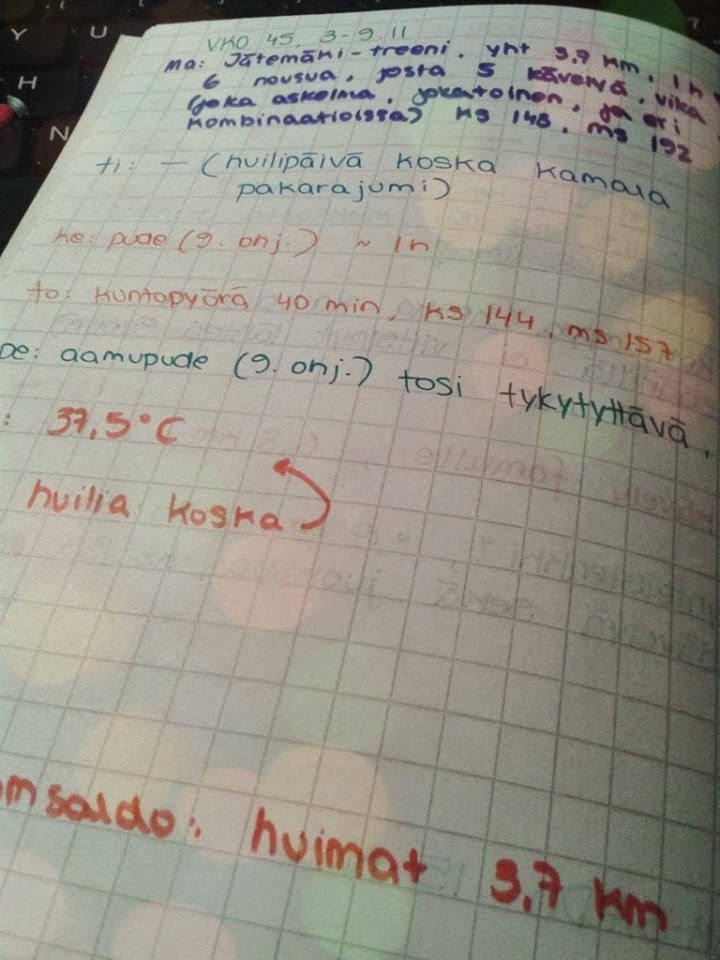 Y U
H
N
VKO 45, 3-9.11
ma: Jätemäki-treeni. yht 3,7 km, 1h
6 nousua, josta 5 kävelyä, vika
(joka askelma, jokatoinen, ja eri
kombinaatioissa) KS 148, ms 192
ti: — (huilipäivä koska kamala
pakarajumi)
ke: pude (9. onj.) ~ 1h
to: kuntopyörä 40 min, ks 144, ms 157
pe: aamupude (9. onj.) tosi tykytyttävä.
: 37,5°C
huilia koska
msaldo: huimat 3,7 km